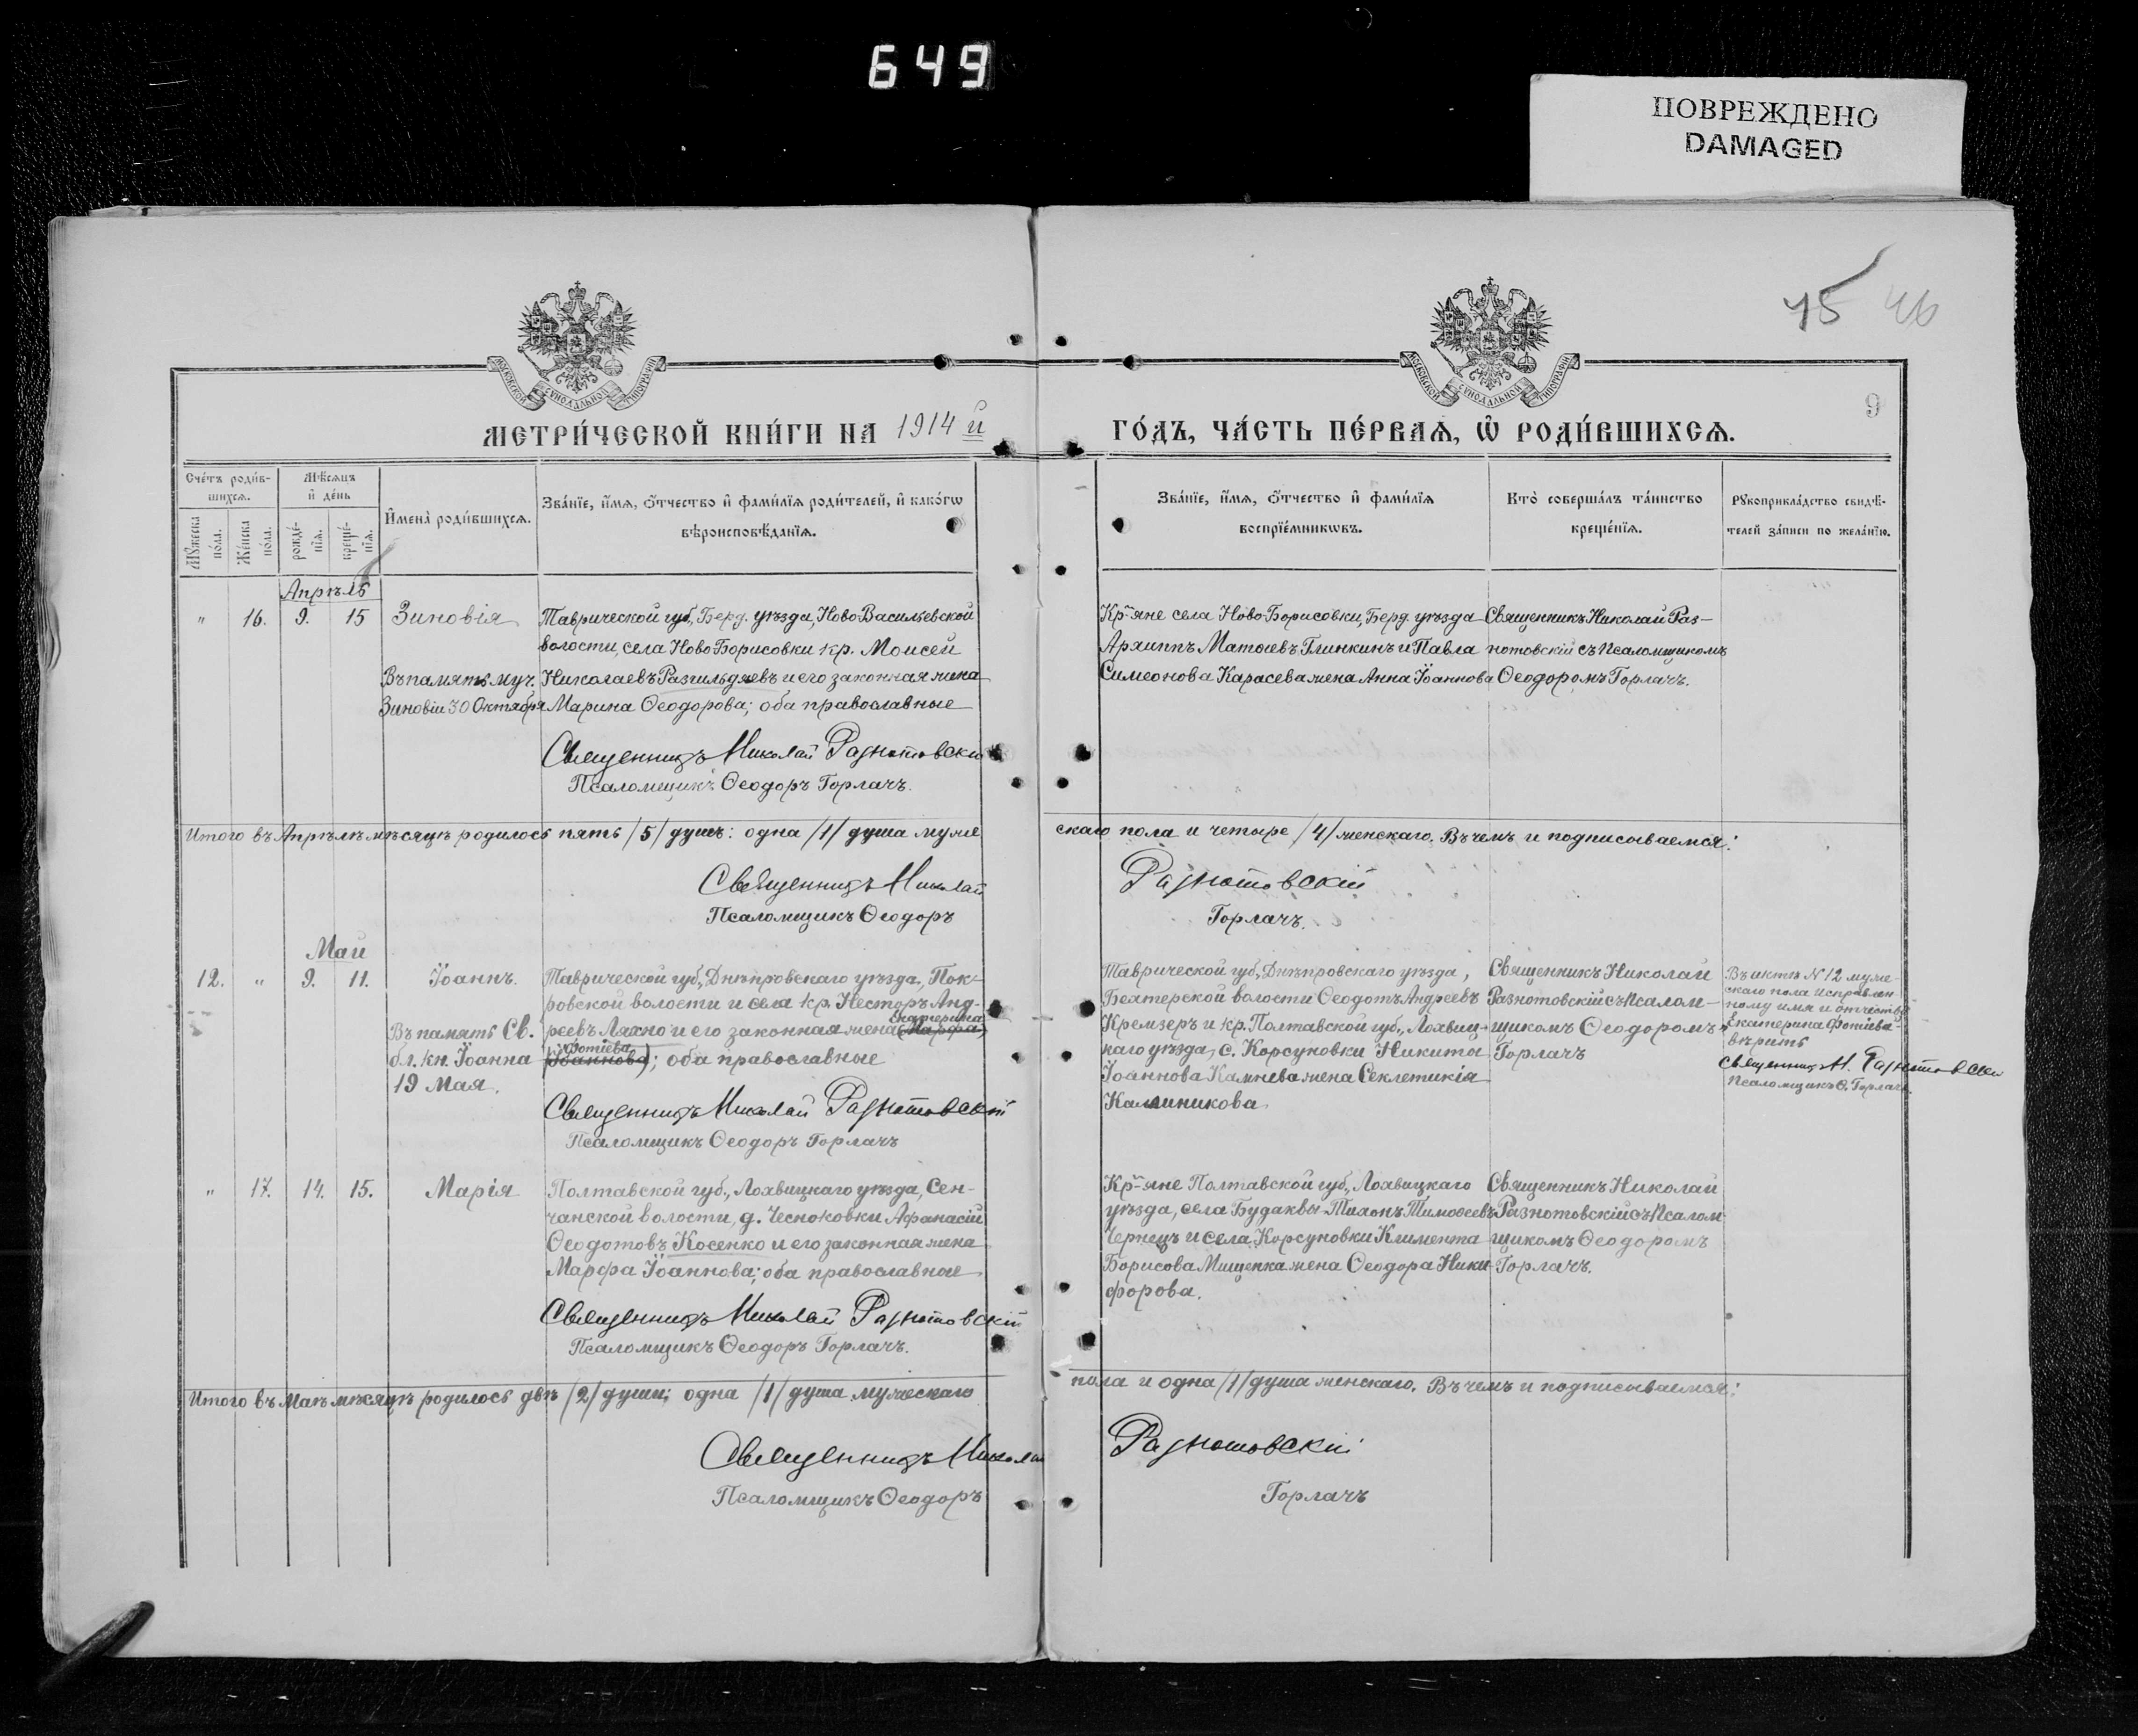 649
ПОВРЕЖДЕНО
DAMAGED
45 46
9
МОСКОВСКОЙ СѴНОДАЛЬНОЙ ТИПОГРАФІИ
МОСКОВСКОЙ СѴНОДАЛЬНОЙ ТИПОГРАФІИ
МЕТРИ́ЧЕСКОЙ КНИ́ГИ НА 1914 й ГО́ДЪ, ЧА́СТЬ ПЕ́РВАѦ, Ѡ҆ РОДИ́ВШИХСѦ.
Сче́тъ роди́в-
шихсѧ.
Мѣ́сѧцъ
и҆ де́нь
Мꙋ́жеска по́ла.
Же́нска по́ла.
рожде́-
нїѧ.
креще́-
нїѧ.
И҆мена̀ роди́вшихсѧ.
Зва́нїе, и҆́мѧ, ѻ҆́тчество и҆ фами́лїѧ роди́телей, и҆ како́гѡ
вѣроисповѣ́данїѧ.
Зва́нїе, и҆́мѧ, ѻ҆́тчество и҆ фами́лїѧ
воспрїе́мникѡвъ.
Кто̀ соверша́лъ та́инство
креще́нїѧ.
Рꙋкоприкла́дство свидѣ́-
телей за́писи по жела́нїю.
Апрѣль
" 16. 9. 15 Зиновія
Въ память муч.
Зиновіи 30 Октября
Таврической губ., Берд. уѣзда, Ново Васильевской
волости, села Ново Борисовки кр. Моисей
Николаевъ Разгильдяевъ и его законная жена
Марина Ѳеодорова; оба православные
Священникъ Николай Разнотовскій
Псаломщикъ Ѳеодоръ Горлачъ.
Кр-яне села Ново-Борисовки, Берд. уѣзда
Архиппъ Матѳеевъ Глинкинъ и Павла
Симеонова Карасева жена Анна Іоаннова
Священникъ Николай Раз-
нотовскій съ Псаломщикомъ
Ѳеодоромъ Горлачъ.
Итого въ Апрѣлѣ мѣсяцѣ родилось пять /5/ душъ: одна /1/ душа муже скаго пола и четыре /4/ женскаго. Въ чемъ и подписываемся:
Священникъ Николай Разнотовскій
Псаломщикъ Ѳеодоръ Горлачъ.
Май
12. " 9. 11. Іоаннъ.
Въ память Св.
бл. кн. Іоанна
19 Мая.
Таврической губ., Днѣпровскаго уѣзда, Пок-
ровской волости и села кр. Несторъ Анд-
Екатерина
реевъ Ляхно и его законная жена (Марфа)
Фотіева
(Іоаннова); оба православные
Священникъ Николай Разнотовскій
Псаломщикъ Ѳеодоръ Горлачъ
Таврической губ., Днѣпровскаго уѣзда,
Бехтерской волости Ѳеодотъ Андреевъ
Кремзеръ и кр. Полтавской губ., Лохвиц-
каго уѣзда, с. Корсуновки Никиты
Іоаннова Камнева жена Секлетикія
Каллиникова.
Священникъ Николай
Разнотовскій съ Псалом-
щикомъ Ѳеодоромъ
Горлачъ
Въ актѣ № 12 муже-
скаго пола исправлен-
ному имя и отчеству
"Екатерина Фотіева"
вѣрить
Священникъ Н. Разнотовскій
Псаломщикъ Ѳ. Горлачъ.
" 17. 14. 15. Марія
Полтавской губ., Лохвицкаго уѣзда, Сен-
чанской волости, д. Чесноковки Аѳанасій
Ѳеодотовъ Косенко и его законная жена
Марфа Іоаннова; оба православные
Священникъ Николай Разнотовскій
Псаломщикъ Ѳеодоръ Горлачъ.
Кр-яне Полтавской губ., Лохвицкаго
уѣзда, села Будаквы Тихонъ Тимоѳеевъ
Чернецъ и села Корсуновки Климента
Борисова Мищенка жена Ѳеодора Ники-
форова.
Священникъ Николай
Разнотовскій съ Псалом
щикомъ Ѳеодоромъ
Горлачъ.
Итого въ Маѣ мѣсяцѣ родилось двѣ /2/ души; одна /1/ душа мужескаго пола и одна /1/ душа женскаго. Въ чемъ и подписываемся:
Священникъ Николай Разнотовскій
Псаломщикъ Ѳеодоръ Горлачъ